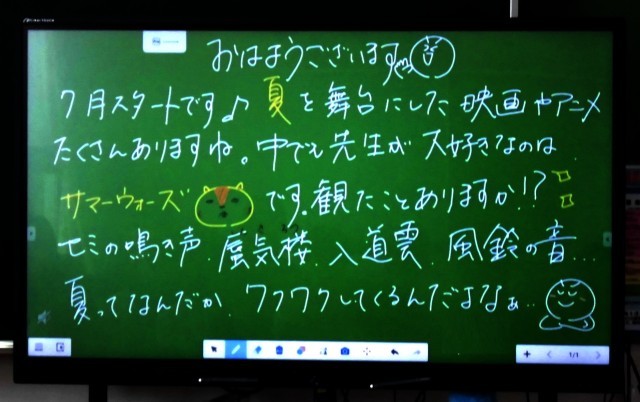 おはようございます
7月スタートです♪夏を舞台にした映画やアニメ
たくさんありますね。中でも先生が大好きなのは
サマーウォーズです。観たことありますか!?
セミの鳴き声、蜃気楼、入道雲、風鈴の音…
夏ってなんだか、ワクワクしてくるんだよなぁ…
1/1